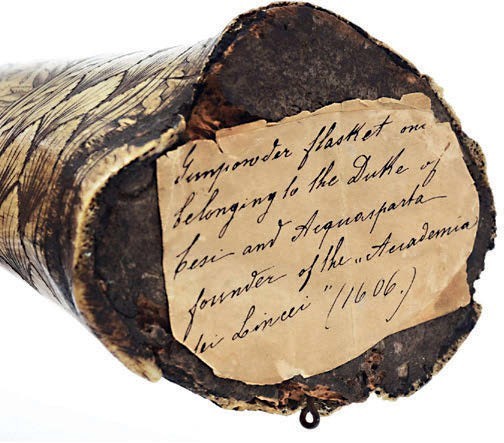 Gunpowder flasket one
belonging to the Duke of
Cesi and Acquasparta
founder of the „Accademia
dei Lincei" (1606.)